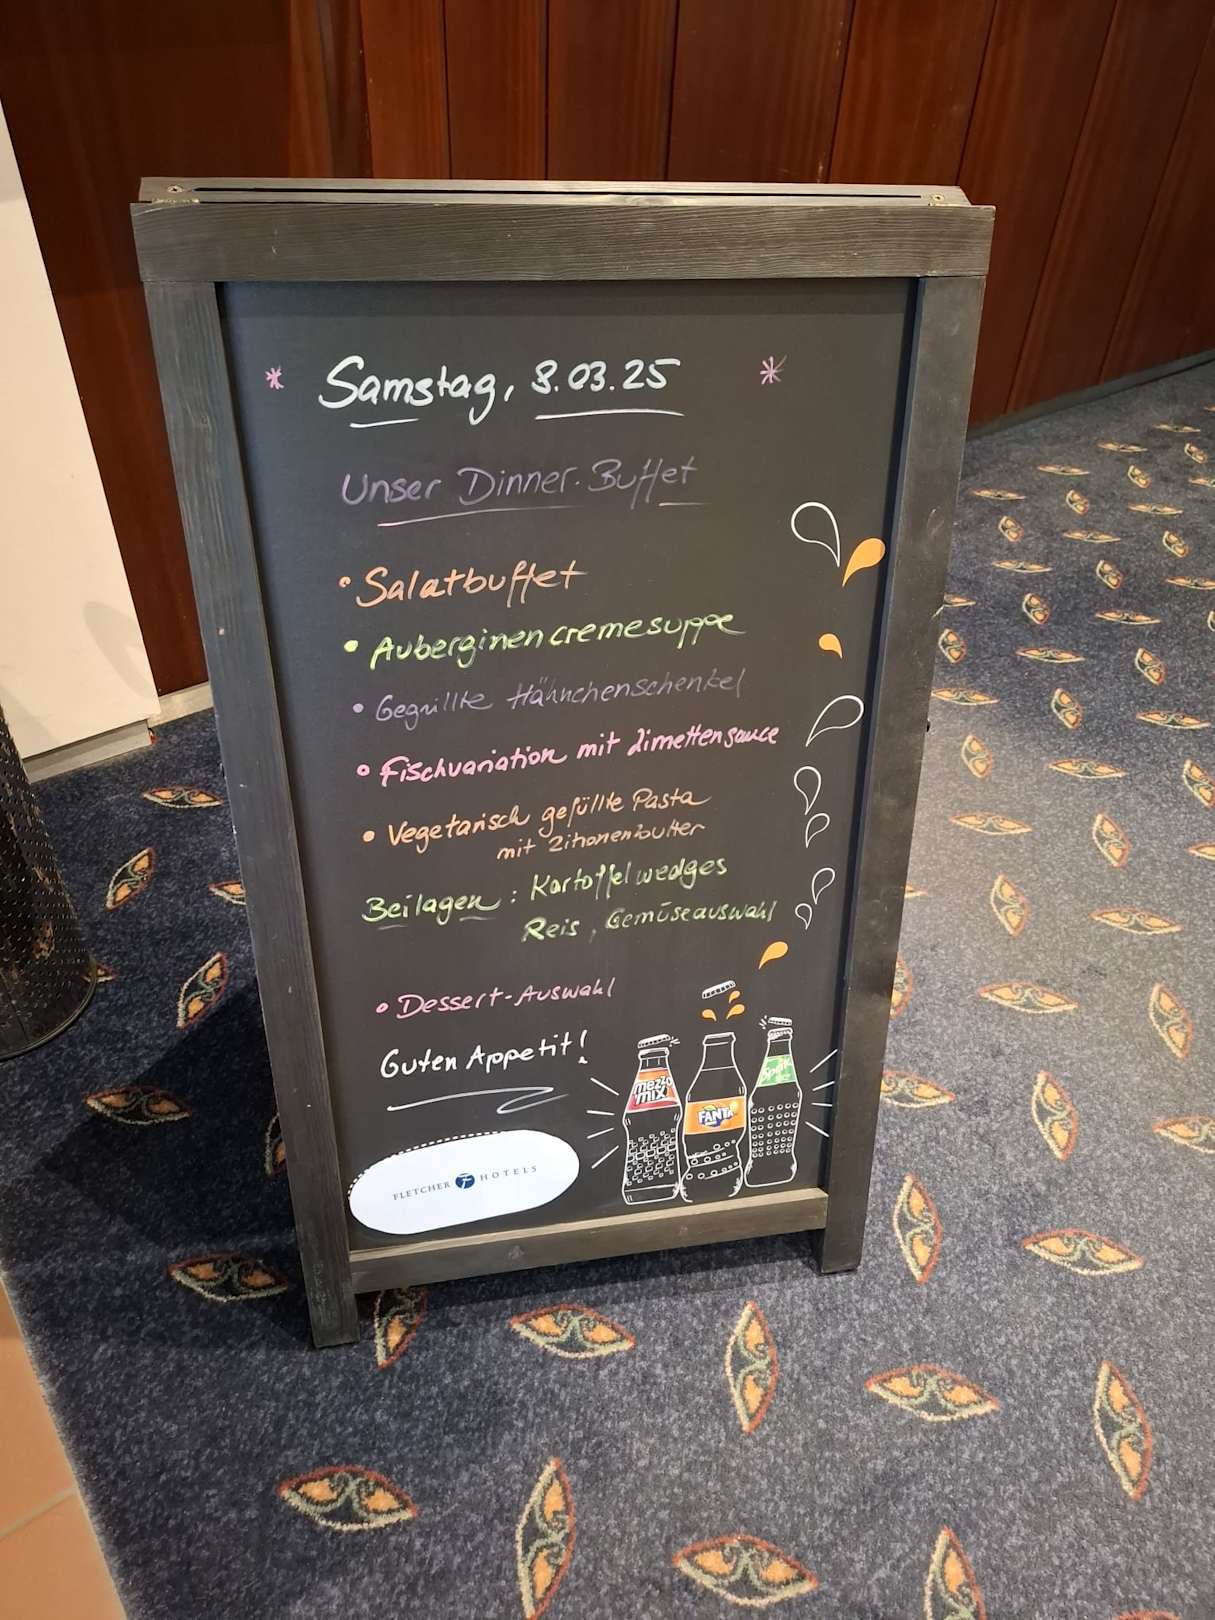 Samstag, 8.03.25
Unser Dinner-Buffet
• Salatbuffet
• Auberginencremesuppe
• Gegrillte Hähnchenschenkel
• Fischvariation mit Limettensauce
• Vegetarisch gefüllte Pasta
mit Zitronenbutter
Beilagen: Kartoffelwedges
Reis, Gemüseauswahl
• Dessert-Auswahl
Guten Appetit!
mezzo mix
FANTA
Sprite
FLETCHER HOTELS